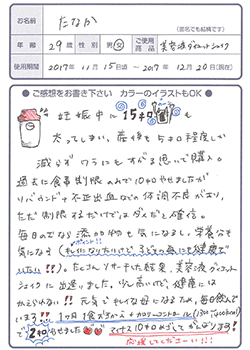 お名前 たなか
(匿名でも結構です)
年齢 29歳 性別 男・女 ご使用商品 美容液ダイエットシェイク
使用期間 2017年11月15日頃〜2017年12月20日(現在)
●ご感想をお書き下さい カラーのイラストもOK●
妊娠中に15キロ
太ってしまい、産後も5キロ程度しか
減らずワラにもすがる思いで購入。
過去に食事制限のみで10キロやせましたが
リバウンド+不正出血などの体調不良が出て、
ただ制限するだけではダメだと確信。
毎日のむなら添加物も気になるし、栄養分も
気になる
ポイント!!
(キレイになりたいけど子どもの為にも健康で
いたい!!)。たくさんリサーチした結果、美容液ダイエット
シェイクに出逢いました。少し高いけど、健康には
かえられない!!元気でキレイな母になるため、毎日飲んで
います!!1ヶ月1食おきかえ+カロリーコントロール(1300〜1400kcal)
で2キロやせました
マイナス10キロめざしてがんばります!
応援してくださーい!!